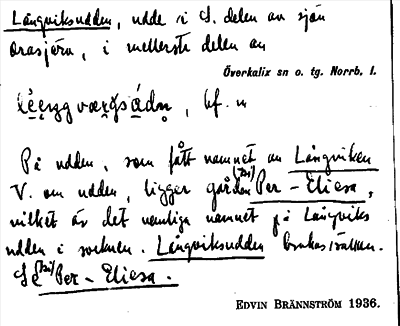 Långviksudden, udde i S. delen av sjön
Orasjärv, i mellersta delen av
Överkalix sn o. tg. Norrb. l.
bf. n
På udden, som fått namnet av Långviken
V. om udden, ligger gården Per-Eliesa,
vilket är det vanliga namnet på Långviks
udden i socknen. Långviksudden brukas sällan.
Se Per-Eliesa.
EDVIN BRÄNNSTRÖM 1936.